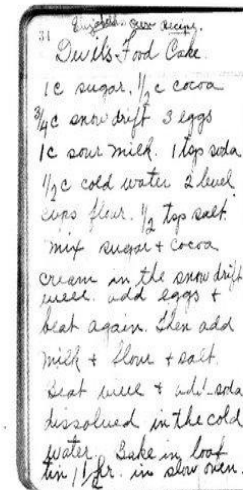 31
Recipe.
Devils-Food Cake.
1c sugar. 1/2 c cocoa
3/4c snowdrift 3 eggs
1c sour milk. 1 tsp soda
1/2 c cold water 2 level
cups flour. 1/2 tsp salt.
mix sugar + cocoa
cream in the snowdrift
well. add eggs +
beat again. Then add
milk + flour + salt.
Beat well + add soda
dissolved in the cold
water. Bake in loaf
tin, 1 hr. in slow oven.